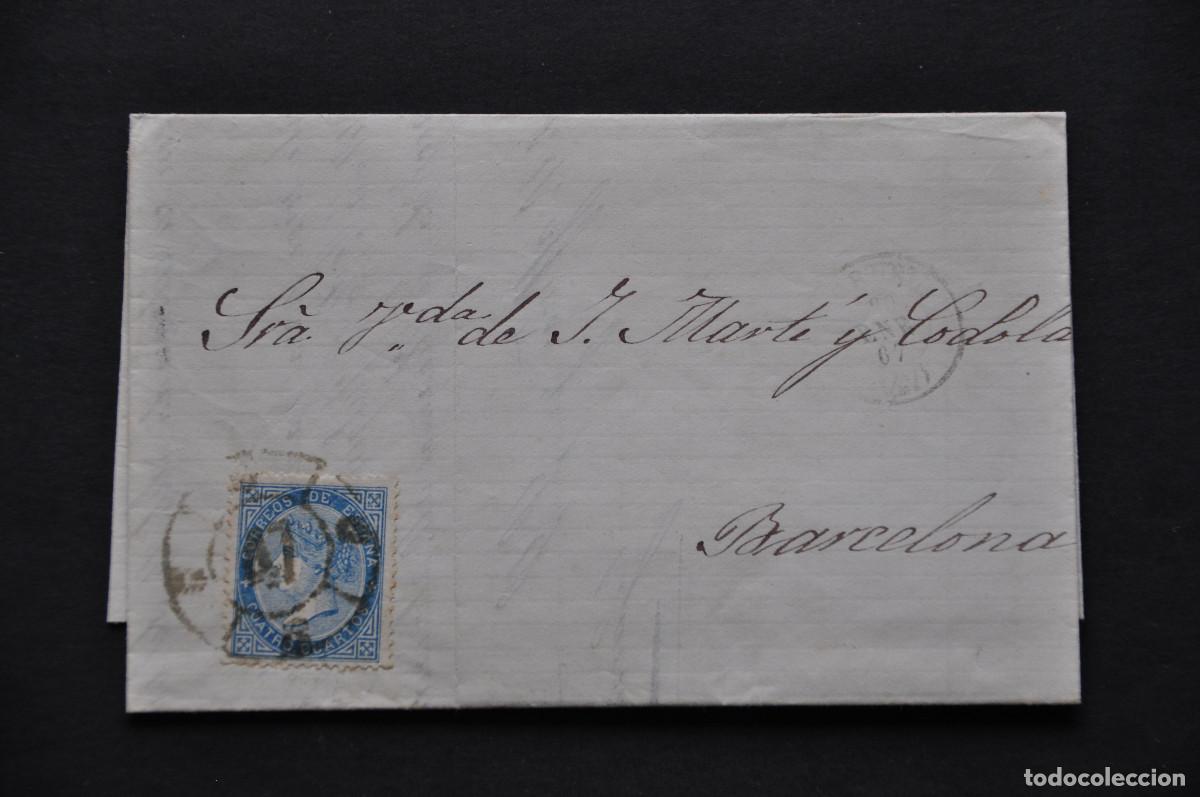 Sra. Vda. de J. Martí y Codola
ENE
67
Barcelona
CORREOS DE ESPAÑA
41
CUATRO CUARTOS
todocoleccion